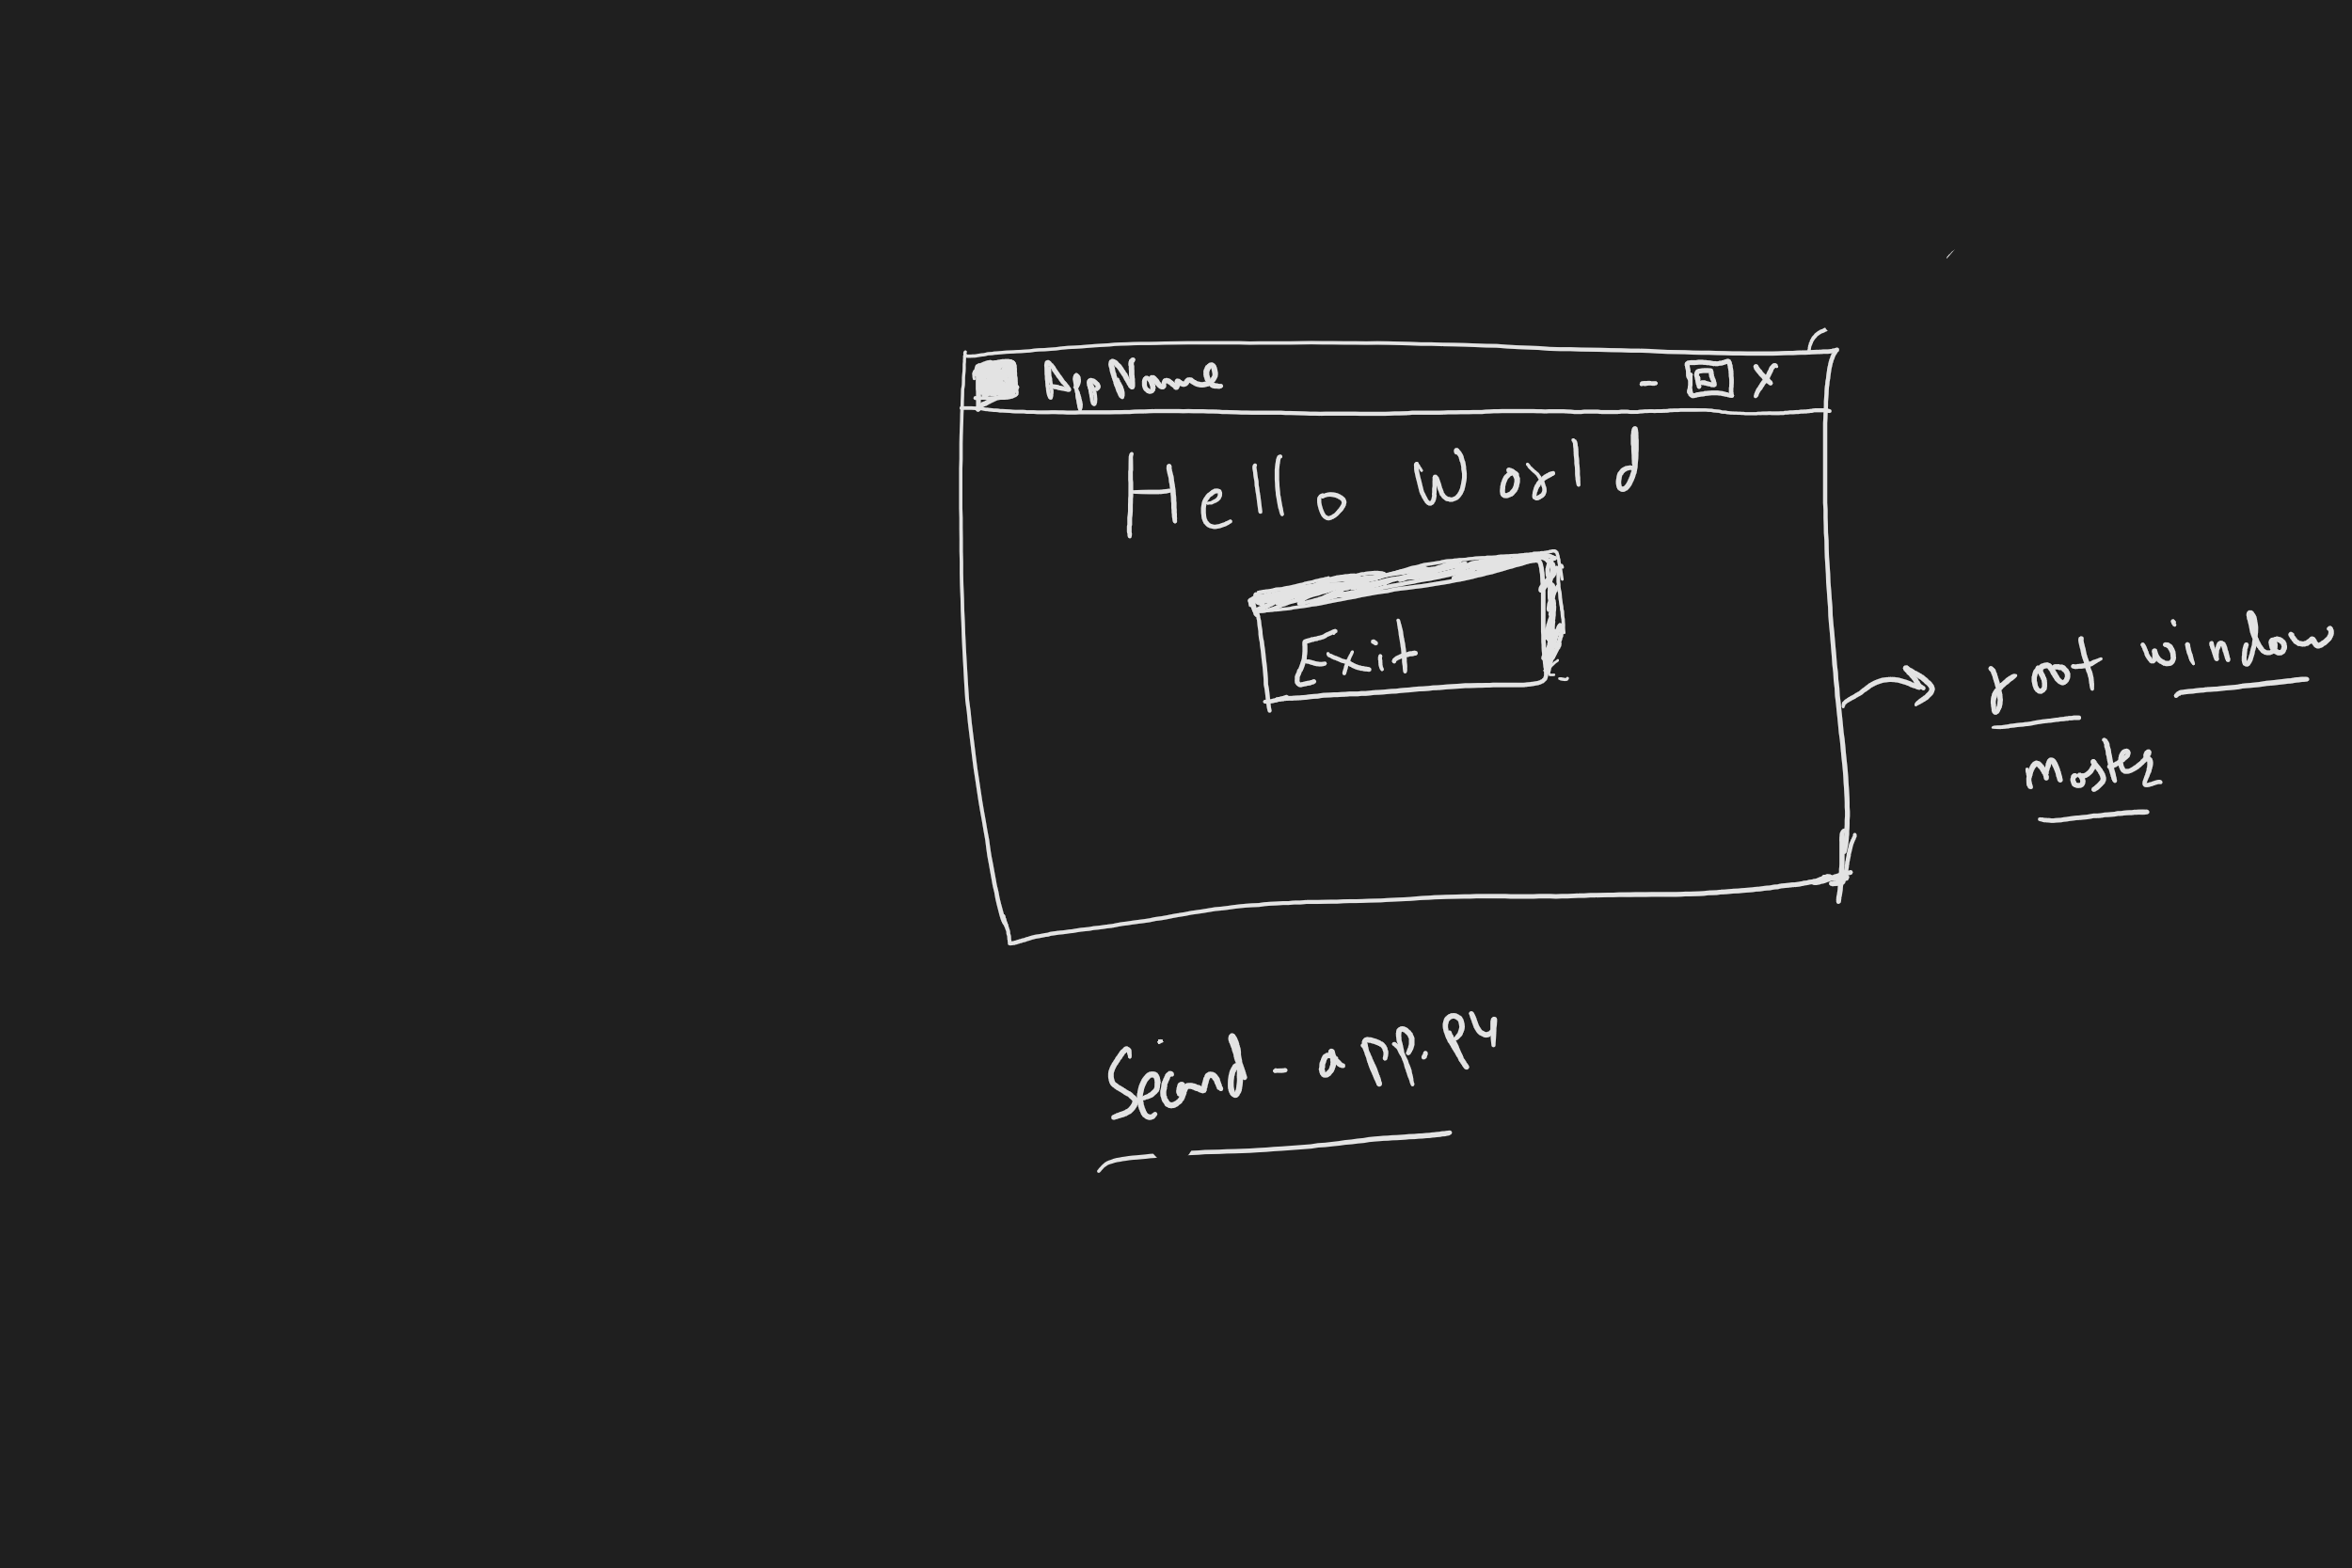 AppName - X
Hello World
Exit
root window
master
Second-app.py